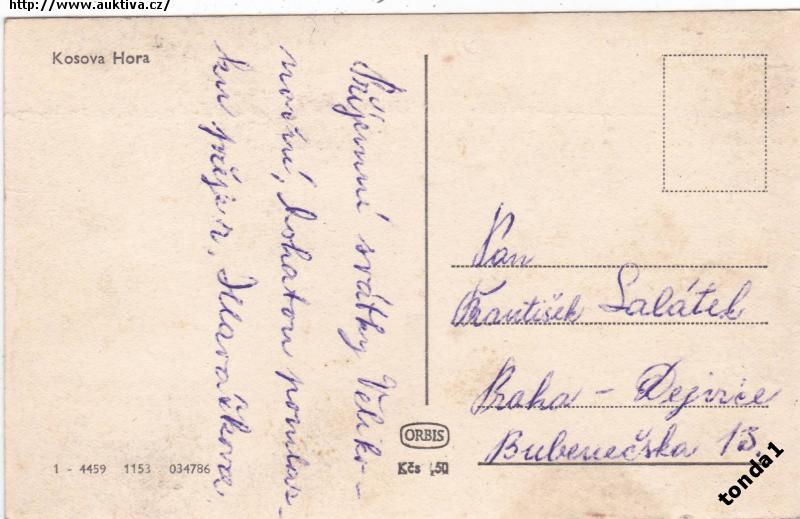 http://www.auktiva.cz/
Kosova Hora
Příjemní svátky Veliko-
noční, bohatou pomlaz-
ku přeje n,
Pan
František Salátek
Praha - Dejvice
Bubenečska 13.
ORBIS
Kčs 1,50
1 - 4459 1153 034786
tonda1